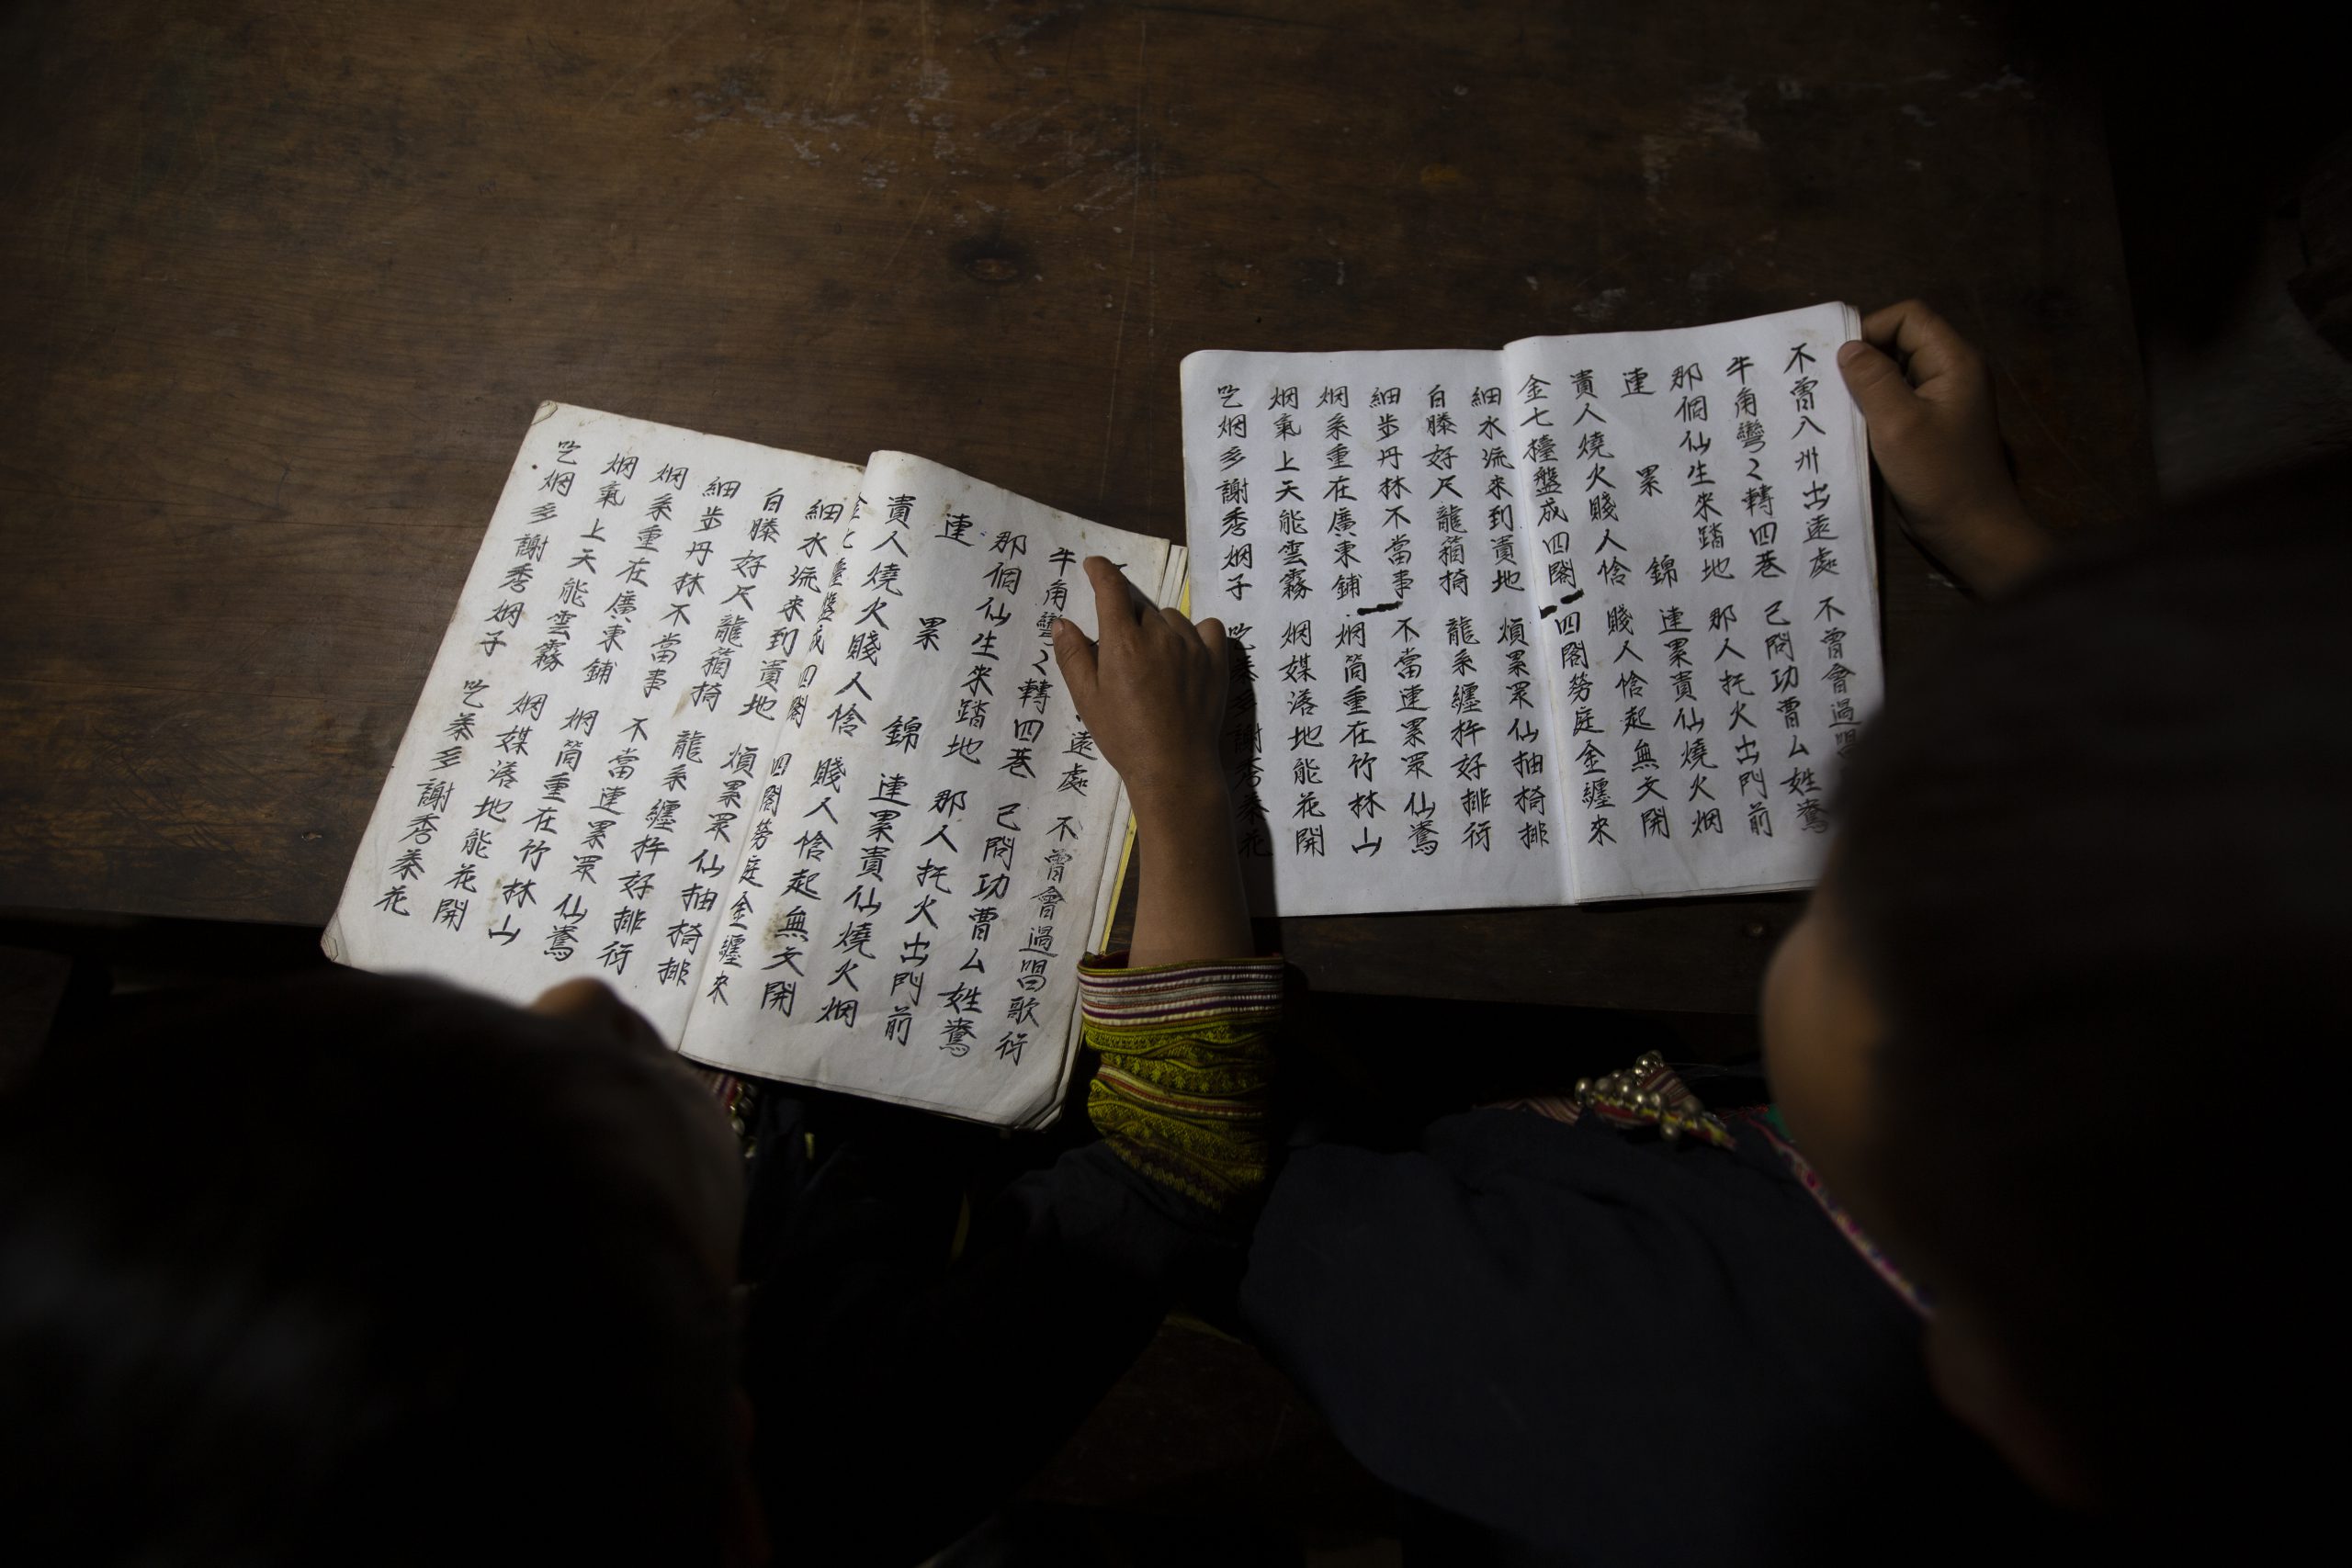 不曾八州出遠處 不曾會過唱
牛角彎々轉四巷 己問功曹厶姓鸞
那個仙生來踏地 那人托火出門前
連 累 錦 連累貴仙燒火烟
貴人燒火賤人恰 賤人恰起無文開
金七檯盤成四閣 四閣勞庭金纏來
細水流來到貴地 煩累眾仙抽椅排
白藤好尺龍箱椅 龍系纏杵好排行
細步丹林不當事 不當連累眾仙鸞
烟系重在廣東鋪 烟筒重在竹林山
烟氣上天能雲霧 烟媒落地能花開
吃烟多謝秀烟子 吃茶多謝秀茶花
遠處 不曾會過唱歌行
牛角彎々轉四巷 己問功曹厶姓鸞
那個仙生來踏地 那人托火出門前
連 累 錦 連累貴仙燒火烟
貴人燒火賤人恰 賤人恰起無文開
金七檯盤成四閣 四閣勞庭金纏來
細水流來到貴地 煩累眾仙抽椅排
白藤好尺龍箱椅 龍系纏杵好排行
細步丹林不當事 不當連累眾仙鸞
烟系重在廣東鋪 烟筒重在竹林山
烟氣上天能雲霧 烟媒落地能花開
吃烟多謝秀烟子 吃茶多謝秀茶花